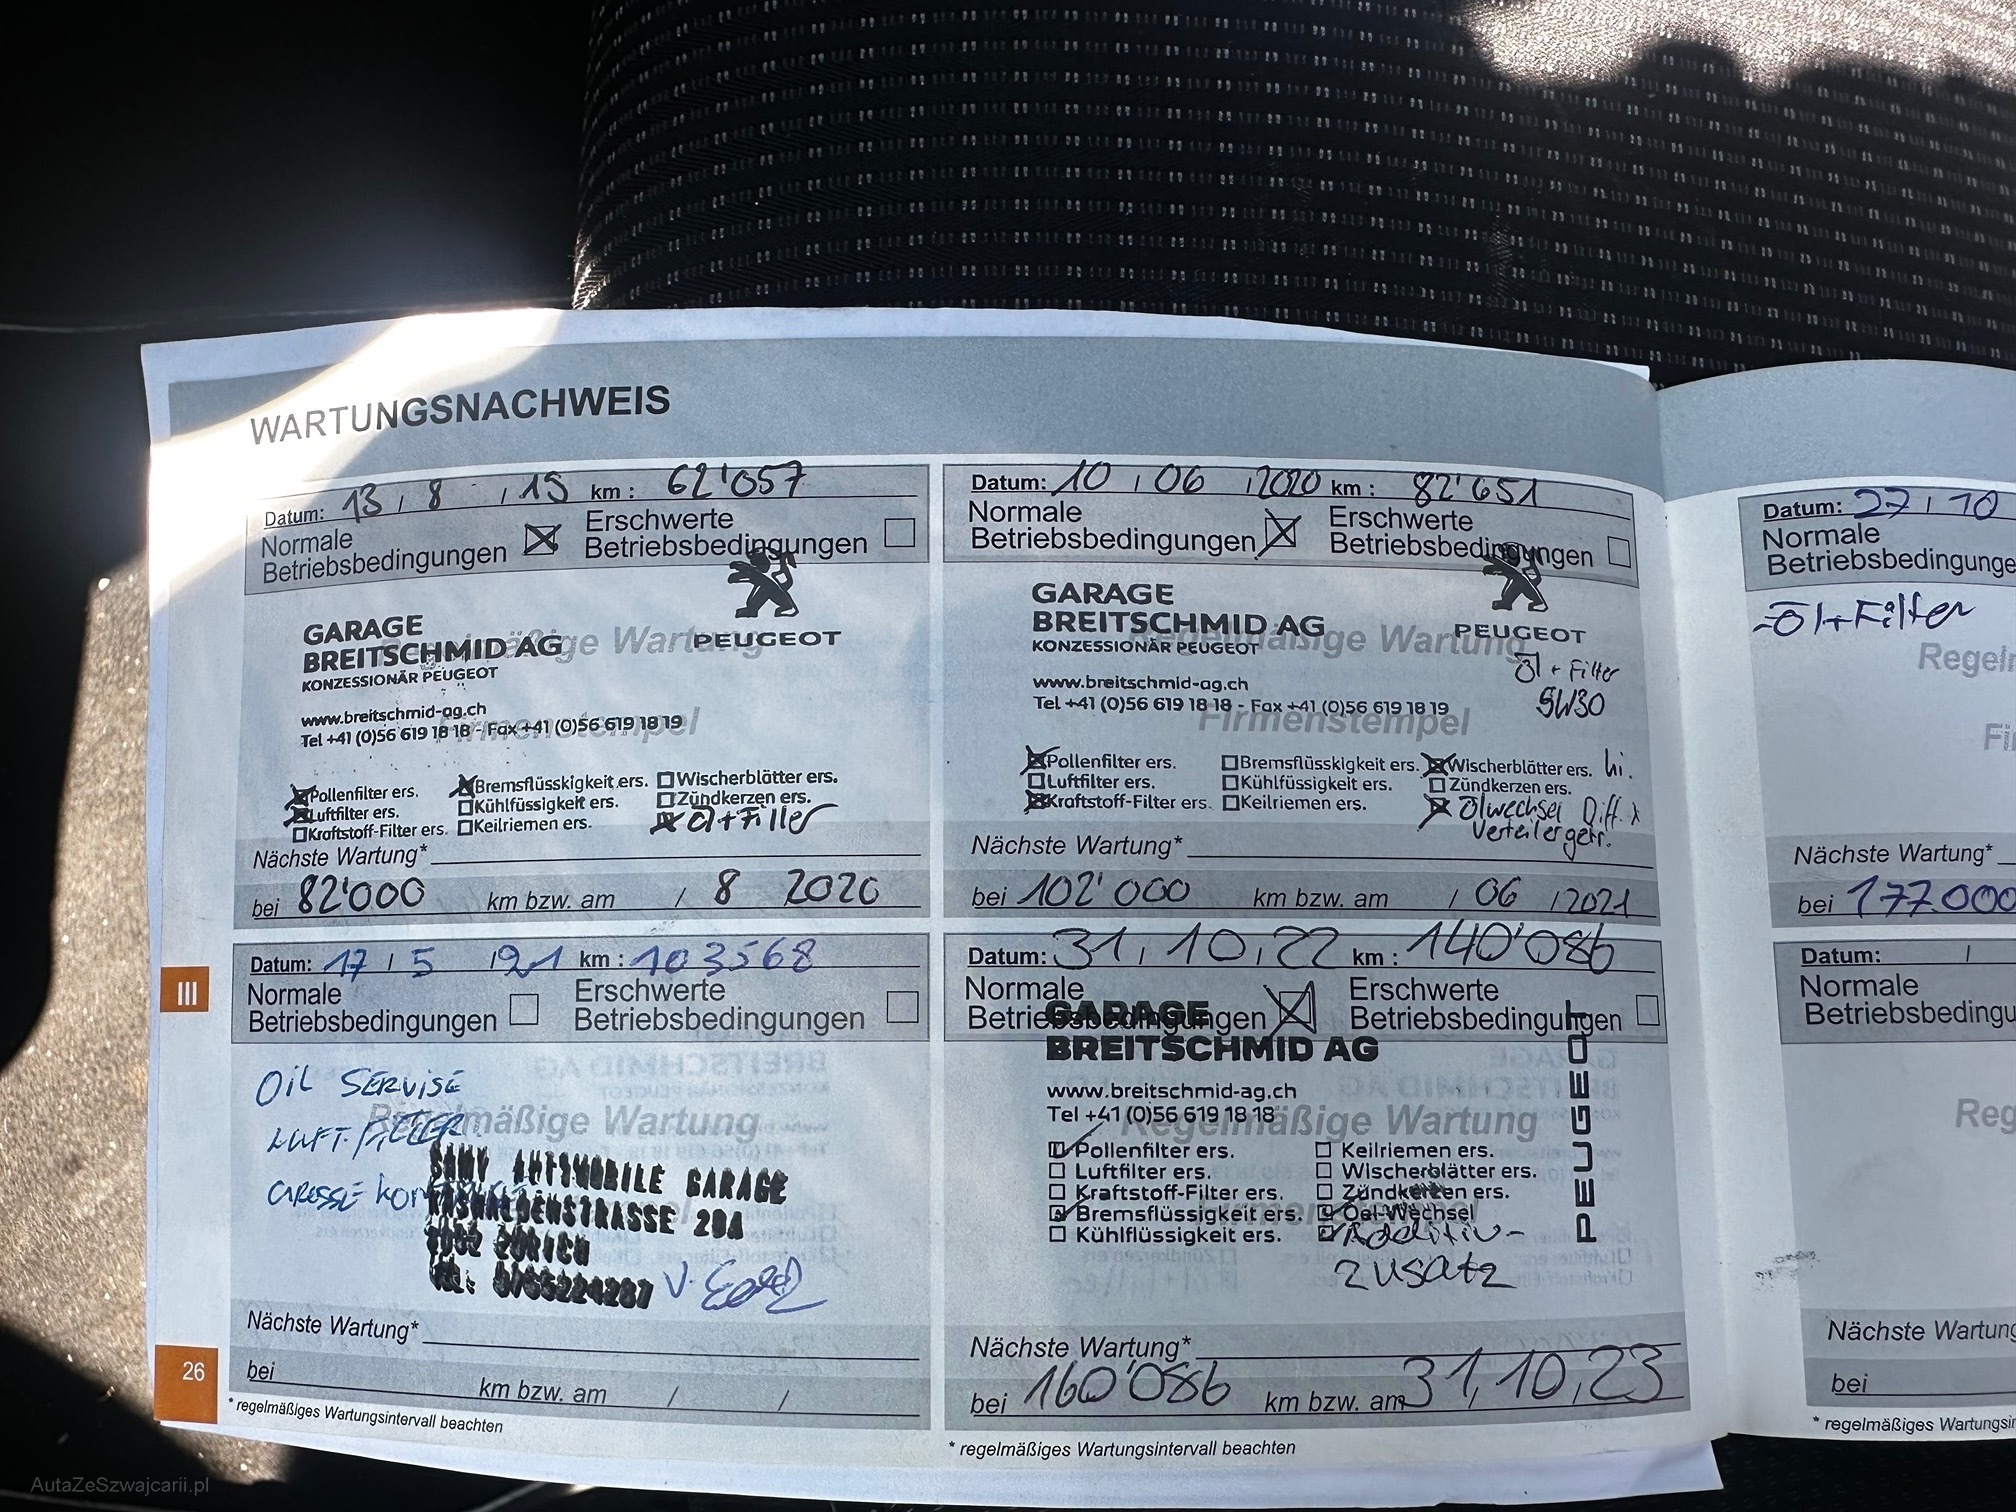 WARTUNGSNACHWEIS
Datum: 13 / 8 / 19 km : 62'057
Normale Betriebsbedingungen
Erschwerte Betriebsbedingungen
GARAGE
BREITSCHMID AG
KONZESSIONÄR PEUGEOT
PEUGEOT
Regelmäßige Wartung
www.breitschmid-ag.ch
Tel +41 (0)56 619 18 18 - Fax +41 (0)56 619 18 19
Firmenstempel
Pollenfilter ers. Bremsflüsskigkeit ers. Wischerblätter ers.
Luftfilter ers. Kühlfüssigkeit ers. Zündkerzen ers.
Kraftstoff-Filter ers. Keilriemen ers. Öl+Filter
Nächste Wartung*
bei 82'000 km bzw. am / 8 2020
Datum: 10 / 06 / 2020 km : 82'651
Normale Betriebsbedingungen
Erschwerte Betriebsbedingungen
GARAGE
BREITSCHMID AG
KONZESSIONÄR PEUGEOT
PEUGEOT
Regelmäßige Wartung
Öl + Filter
5W30
www.breitschmid-ag.ch
Tel +41 (0)56 619 18 18 - Fax +41 (0)56 619 18 19
Firmenstempel
Pollenfilter ers. Bremsflüssigkeit ers. Wischerblätter ers. hi.
Luftfilter ers. Kühlfüssigkeit ers. Zündkerzen ers.
Kraftstoff-Filter ers. Keilriemen ers. Ölwechsel Diff.
Verteilergetr.
Nächste Wartung*
bei 102'000 km bzw. am / 06 / 2021
Datum: 17 / 5 / 21 km : 103568
Normale Betriebsbedingungen
Erschwerte Betriebsbedingungen
OIL SERVISE
Regelmäßige Wartung
LUFT. FILTER
GROSSE
AUTOMOBILE GARAGE
STRASSE 20A
ZÜRICH
Nächste Wartung*
bei km bzw. am / /
* regelmäßiges Wartungsintervall beachten
Datum: 31, 10, 22 km : 140'086
Normale Betriebsbedingungen
Erschwerte Betriebsbedingungen
GARAGE
BREITSCHMID AG
PEUGEOT
www.breitschmid-ag.ch
Tel +41 (0)56 619 18 18
Regelmäßige Wartung
Pollenfilter ers. Keilriemen ers.
Luftfilter ers. Wischerblätter ers.
Kraftstoff-Filter ers. Zündkerzen ers.
Bremsflüssigkeit ers. Oel-Wechsel
Kühlflüssigkeit ers. Additiv-
zusatz
Nächste Wartung*
bei 160'086 km bzw. am 31,10,23
* regelmäßiges Wartungsintervall beachten
III
26
Datum: 27 / 10
Normale
Betriebsbedingunge
-Öl+Filter
Regel
Nächste Wartung*
bei 177.000
Datum: /
Normale
Betriebsbedingu
Reg
Nächste Wartung
bei
* regelmäßiges Wartungsin
AutaZeSzwajcarii.pl